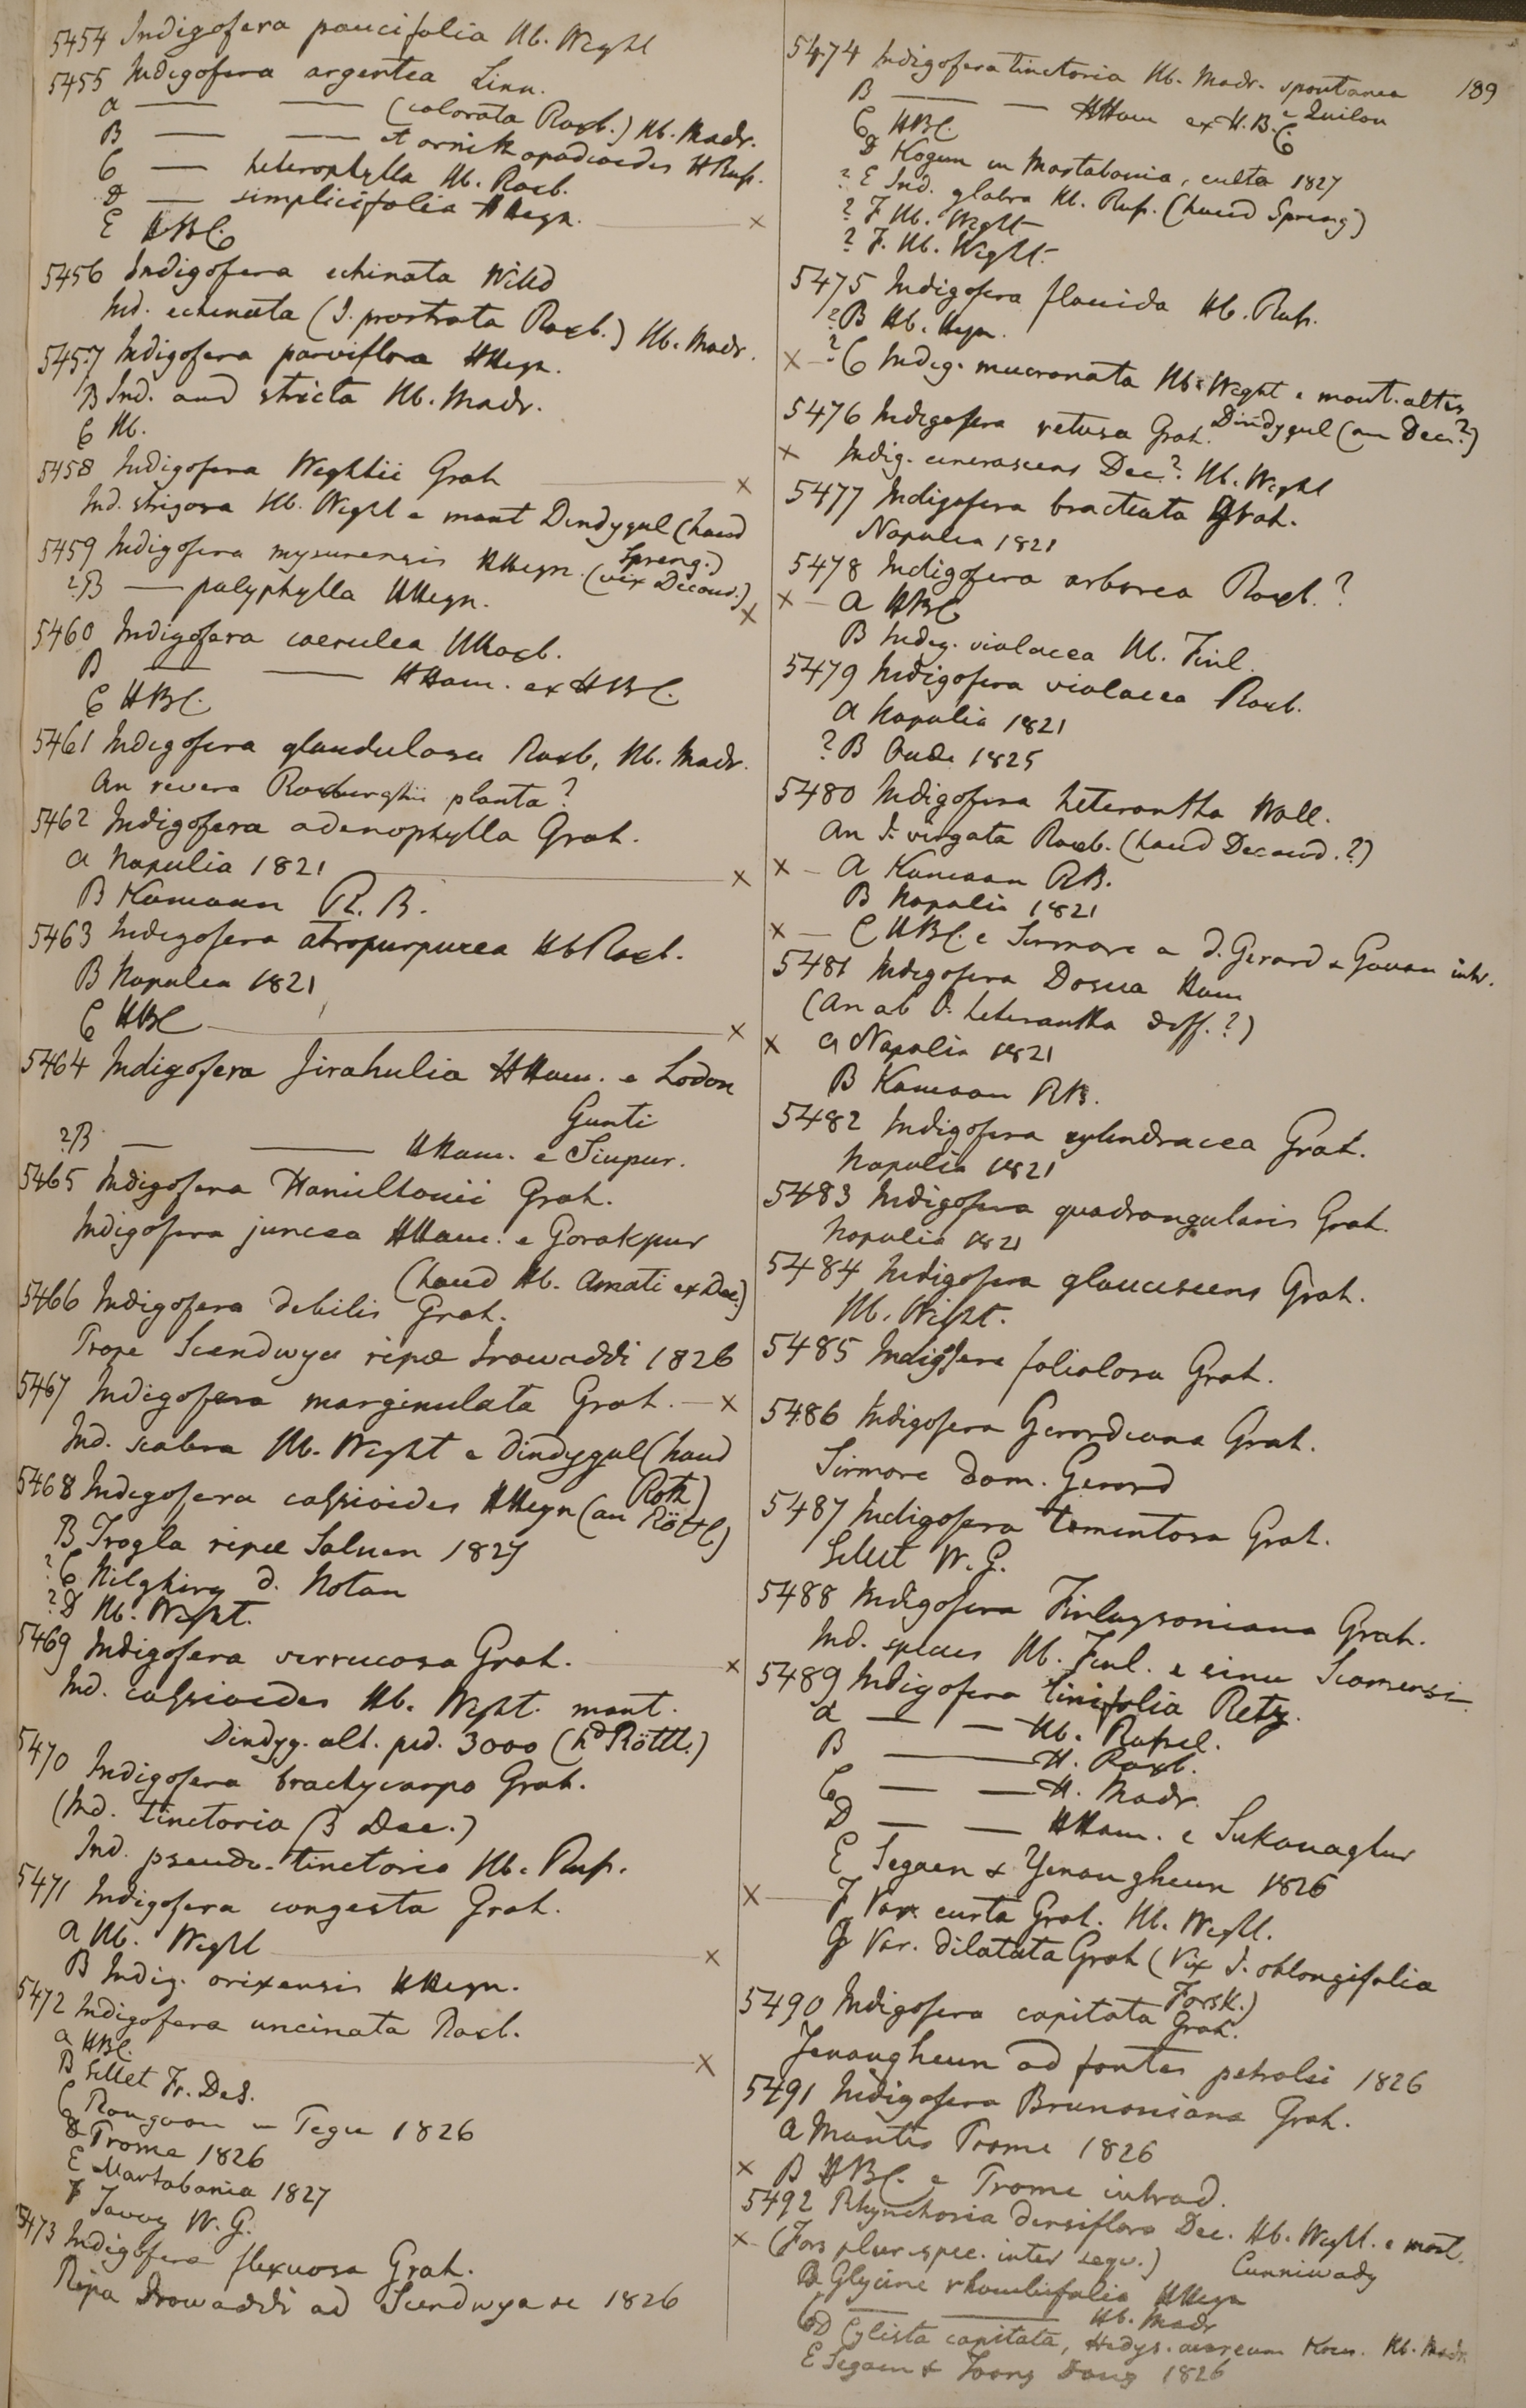 5454 Indigofera paucifolia Hb. Wight
5455 Indigofera argentea Linn.
a — — (colorata Roxb.) Hb. Madr.
B — — et ornithopodioides HRuss.
C — heterophylla Hb. Roxb.
D — simplicifolia HHeyn.
E HBC. ×
5456 Indigofera echinata Willd
Ind. echinata (I. prostrata Roxb.) Hb. Madr.
5457 Indigofera parviflora HHeyn.
B Ind. and stricta Hb. Madr.
C Hb.
5458 Indigofera Wightii Grah ×
Ind. strigosa Hb. Wight e mont Dindygul (haud
Spreng.)
5459 Indigofera mysurensis HHeyn. (vix Decand.)
?B — polyphylla HHeyn. ×
5460 Indigofera coerulea HRoxb.
B — — HHam. ex HBC.
C HBC.
5461 Indigofera glandulosa Roxb. Hb. Madr.
An revera Roxburghii planta?
5462 Indigofera adenophylla Grah.
a Napalia 1821 ×
B Kamaon R.B.
5463 Indigofera atropurpurea Hb Roxb.
B Napalia 1821
C HBC ×
5464 Indigofera Jirahulia HHam. e Lodon
Gunti
?B — — HHam. e Siupur.
5465 Indigofera Hamiltonii Grah.
Indigofera juncea HHam. e Gorakpur
(haud Hb. Amati ex Dec.)
5466 Indigofera debilis Grah.
Prope Seendwya ripæ Irawaddi 1826
5467 Indigofera marginulata Grah. — ×
Ind. scabra Hb. Wight e Dindygul (haud
Roth)
5468 Indigofera cassioides HHeyn (an Röttl)
B Trogla ripæ Saluen 1827
?C Nilghiry d. Noton
?D Hb. Wight.
5469 Indigofera verrucosa Grah. ×
Ind. cassioides Hb. Wight. mont.
Dindyg. alt. ped. 3000 (hd Röttl.)
5470 Indigofera brachycarpa Grah.
(Ind. tinctoria β Dec.)
Ind. pseudo-tinctoria Hb. Russ.
5471 Indigofera congesta Grah.
a Hb. Wight ×
B Indig. orixensis HHeyn.
5472 Indigofera uncinata Roxb.
a HBC. ×
B Sillet Fr. DeS.
C Rangoon — Pegu 1826
D Prome 1826
E Martabania 1827
F Tavoy W.G.
5473 Indigofera flexuosa Grah.
Ripa Irowaddi ad Seendwya se 1826
189
5474 Indigofera tinctoria Hb. Madr. spontanea
e Quilon
B — — HHam ex H.B.C
C HBC.
D Kogun in Martabania, culta 1827
?E Ind. glabra Hb. Russ. (haud Spreng)
? F Hb. Wight
? F. Hb. Wight.
5475 Indigofera flaccida Hb. Russ.
?B Hb. Heyn.
× — ?C Indig. mucronata Hb. Wight e mont. altis
Dindygul (an Dec.?)
5476 Indigofera retusa Grah.
× Indig. cinerascens Dec.? Hb. Wight
5477 Indigofera bracteata Grah.
Napalia 1821
5478 Indigofera arborea Roxb.?
× — a HBC
B Indig. violacea Hb. Finl.
5479 Indigofera violacea Roxb.
a Napalia 1821
?B Oude 1825
5480 Indigofera heterantha Wall.
An I. virgata Roxb. (haud Decand.?)
× — a Kamaon RB.
B Napalia 1821
× — C HBC. e Sirmore a D. Gerard & Govan intr.
5481 Indigofera Dosua Ham
(An ab I. heterantha diff.?)
× a Napalia 1821
B Kamaon RB.
5482 Indigofera cylindracea Grah.
Napalia 1821
5483 Indigofera quadrangularis Grah.
Napalia 1821
5484 Indigofera glaucescens Grah.
Hb. Wight.
5485 Indigofera foliolosa Grah.
5486 Indigofera Gerardiana Grah.
Sirmore dom. Gerard
5487 Indigofera tomentosa Grah.
Sillet W.G.
5488 Indigofera Finlaysoniana Grah.
Ind. species Hb. Finl. e sinu Siamensi
5489 Indigofera linifolia Retz.
a — — Hb. Russel.
B — H. Roxb.
C — — H. Madr.
D — — HHam. e Sukanaghur
E Segaen & Yenangheun 1826
× — F Var. curta Grah. Hb. Wight.
G Var. dilatata Grah (Vix I. oblongifolia
Forsk.)
5490 Indigofera capitata Grah.
Yenangheun ad fontes petrolei 1826
5491 Indigofera Brunoniana Grah.
a Montis Prome 1826
× B HBC. e Prome introd.
5492 Rhynchosia densiflora Dec. Hb. Wight. e mont.
Cunniwady
× (Fors plur. spec. inter sequ.)
B Glycine rhombifolia HHeyn
C — — Hb. Madr
D Cylista capitata, Hedys. aureum Koen. Hb. Madr.
E Segaen & Toong Dong 1826